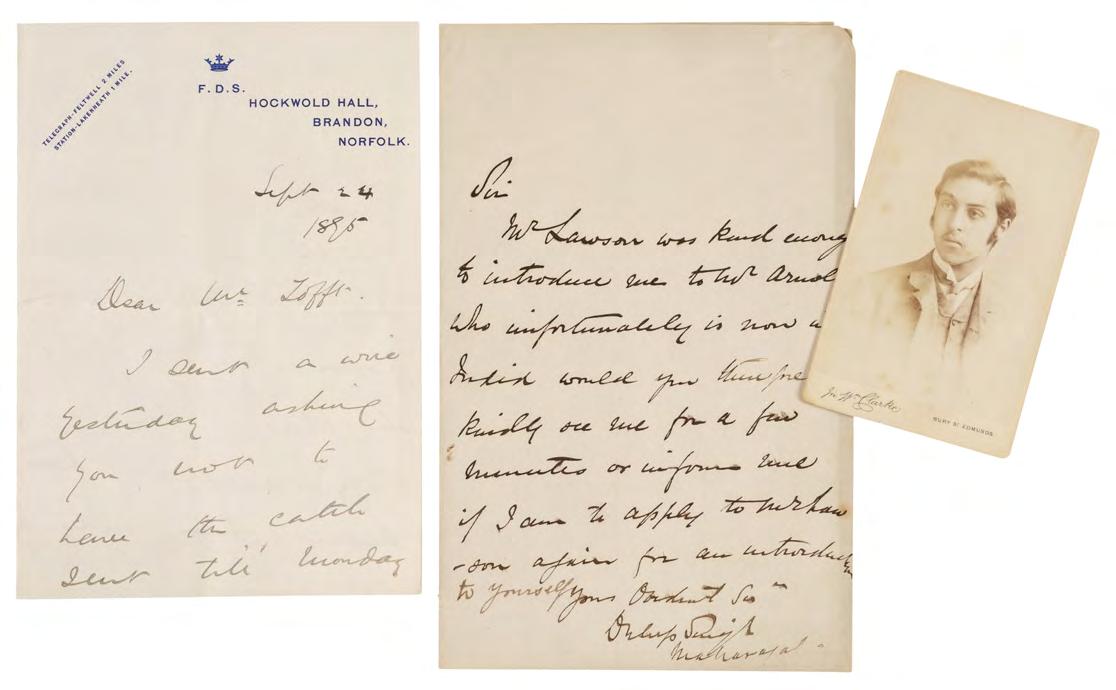 TELEGRAPH-FELTWELL 2 MILES
STATION-LAKENHEATH 1 MILE.
F. D. S.
HOCKWOLD HALL,
BRANDON,
NORFOLK.
Sept 24
1895
Dear Mr Lofft.
I sent a wire
yesterday asking
you not to
have the
sent till Monday
Sir
Mr Lawson was kind enoug
to introduce me to Mr Arnol
who unfortunately is now
India would you therefore
kindly see me for a few
minutes or inform me
if I am to apply to Mr Law
-son again for an introduction
to yourself yours Obedient Sir
Duleep Singh
Maharajah
Jn Wm Clarke
BURY ST EDMUNDS.